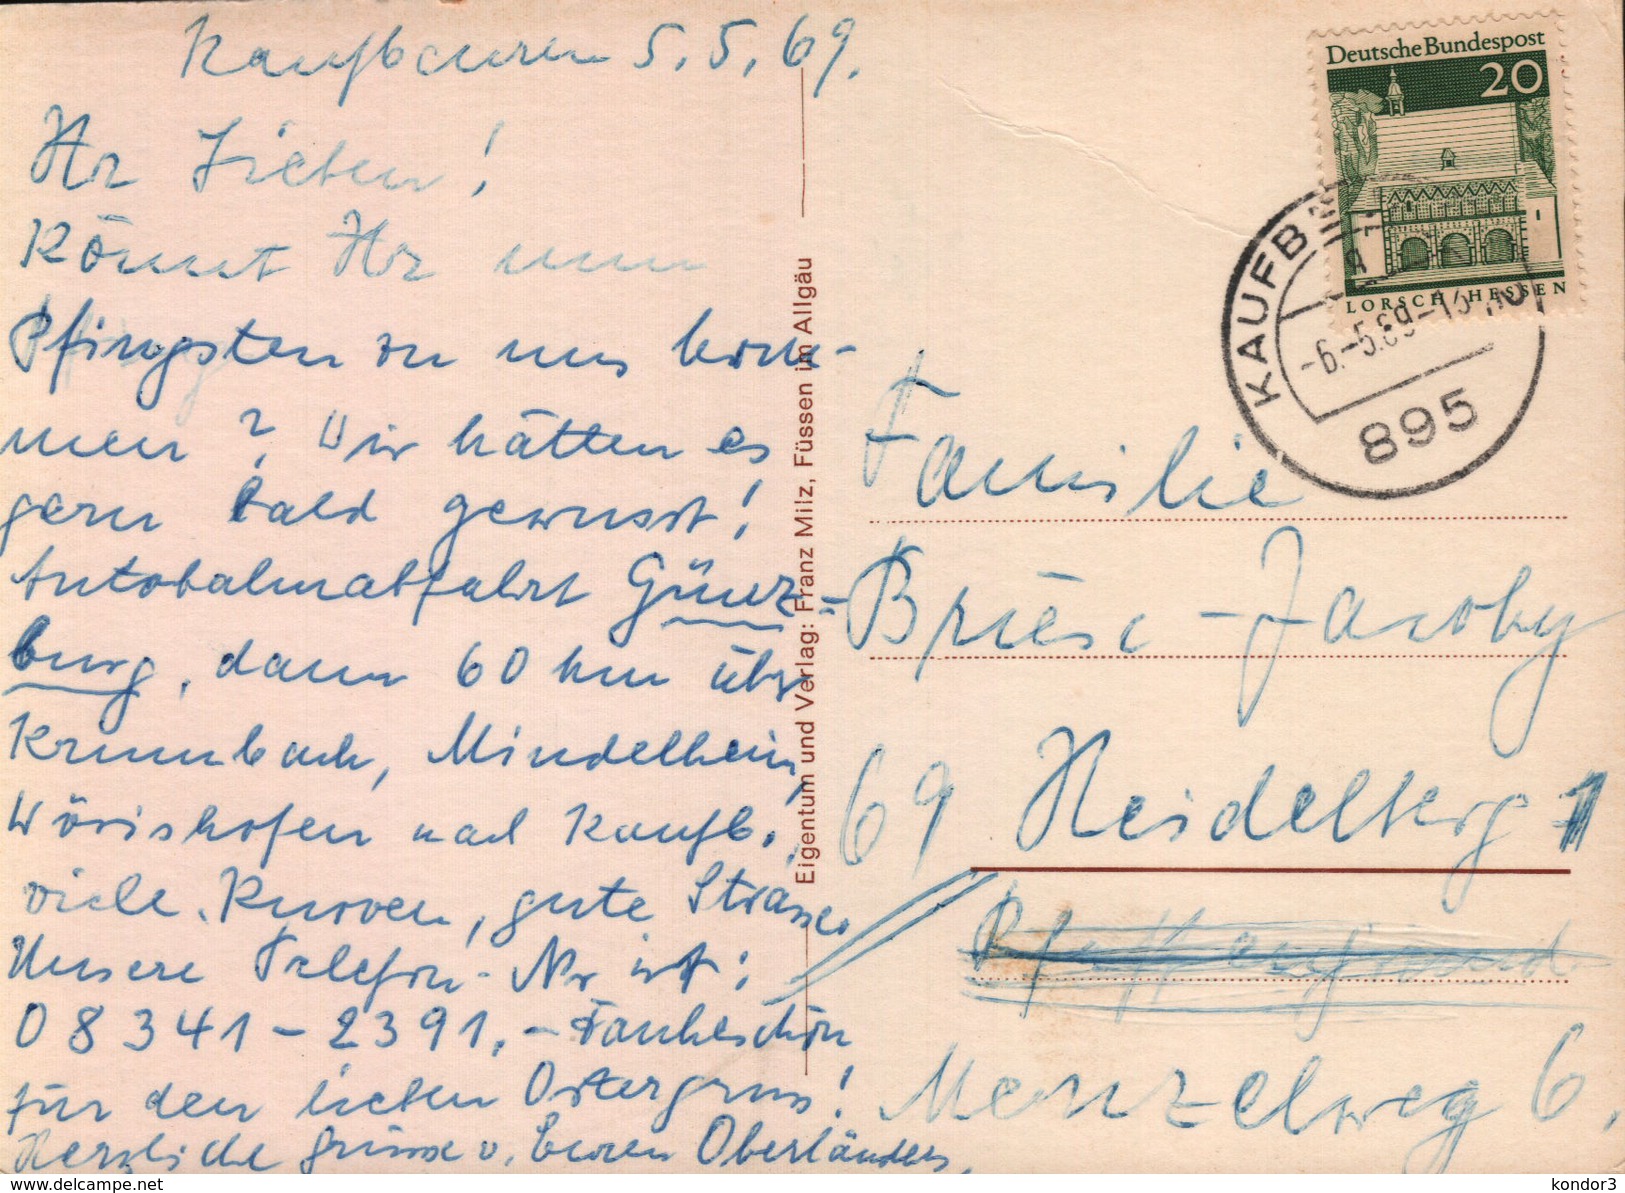 Kaufbeuren 5.5.69.
Ihr Lieben!
Könnt Ihr nun
Pfingsten zu uns kom-
men? Wir hätten es
gern bald gewusst!
Autobahnabfahrt Günz-
burg, dann 60 km über
Krumbach, Mindelheim,
Wörishofen nach Kaufb.,
viele Kurven, gute Strasse.
Unsere Telefon-Nr ist:
08341-2391.- Dankeschön
für den lieben Ostergruss!
Herzliche Grüsse v. Euren Oberländers.
Eigentum und Verlag: Franz Milz, Füssen im Allgäu
Deutsche Bundespost
20
LORSCH/HESSEN
KAUFB
-6.-5.69-15
895
Familie
Briese-Jacoby
69 Heidelberg 1
Pfaffengrund
Menzelweg 6.
delcampe.net
kondor3